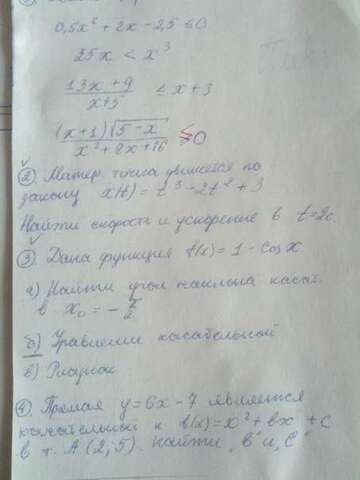 0,5x² + 2x - 2,5 ≤ 0
25x < x³
13x + 9 / x + 5 ≤ x + 3
(x+1)√5-x / x² + 8x + 16 ≤ 0
② Матер. точка движется по
закону x(t) = t³ - 2t² + 3
Найти скорость и ускорение в t=2c
③ Дана функция f(x) = 1 - cos x
а) Найти угол наклона касат.
в x₀ = - π/2
б) Уравнение касательной
в) Рисунок
④ Прямая y = 6x - 7 является
касательной к f(x) = x² + bx + c
в т. A (2; 5). Найти "в" и "с"